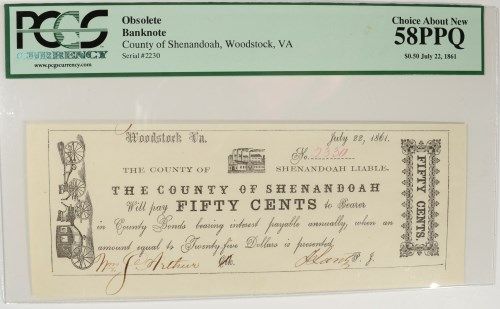 PCGS
CURRENCY
www.pcgscurrency.com
Obsolete
Banknote
County of Shenandoah, Woodstock, VA
Serial #2230
Choice About New
58PPQ
$0.50 July 22, 1861
Woodstock Va. July 22, 1861.
No.
THE COUNTY OF SHENANDOAH LIABLE.
THE COUNTY OF SHENANDOAH
Will pay FIFTY CENTS to Bearer
in County Bonds bearing interest payable annually, when an
amount equal to Twenty-five Dollars is presented.
Wm J. Arthur Clk. P. J.
FIFTY CENTS.